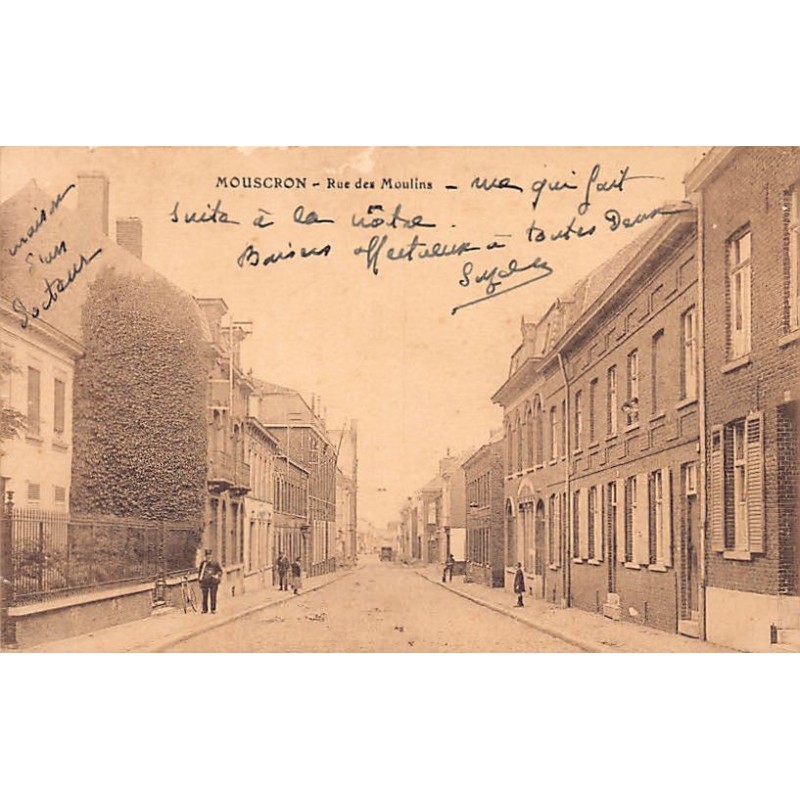 MOUSCRON - Rue des Moulins - rue qui fait
suite à la nôtre.
Baisers affectueux à toutes Deux
maison
d'un
Docteur